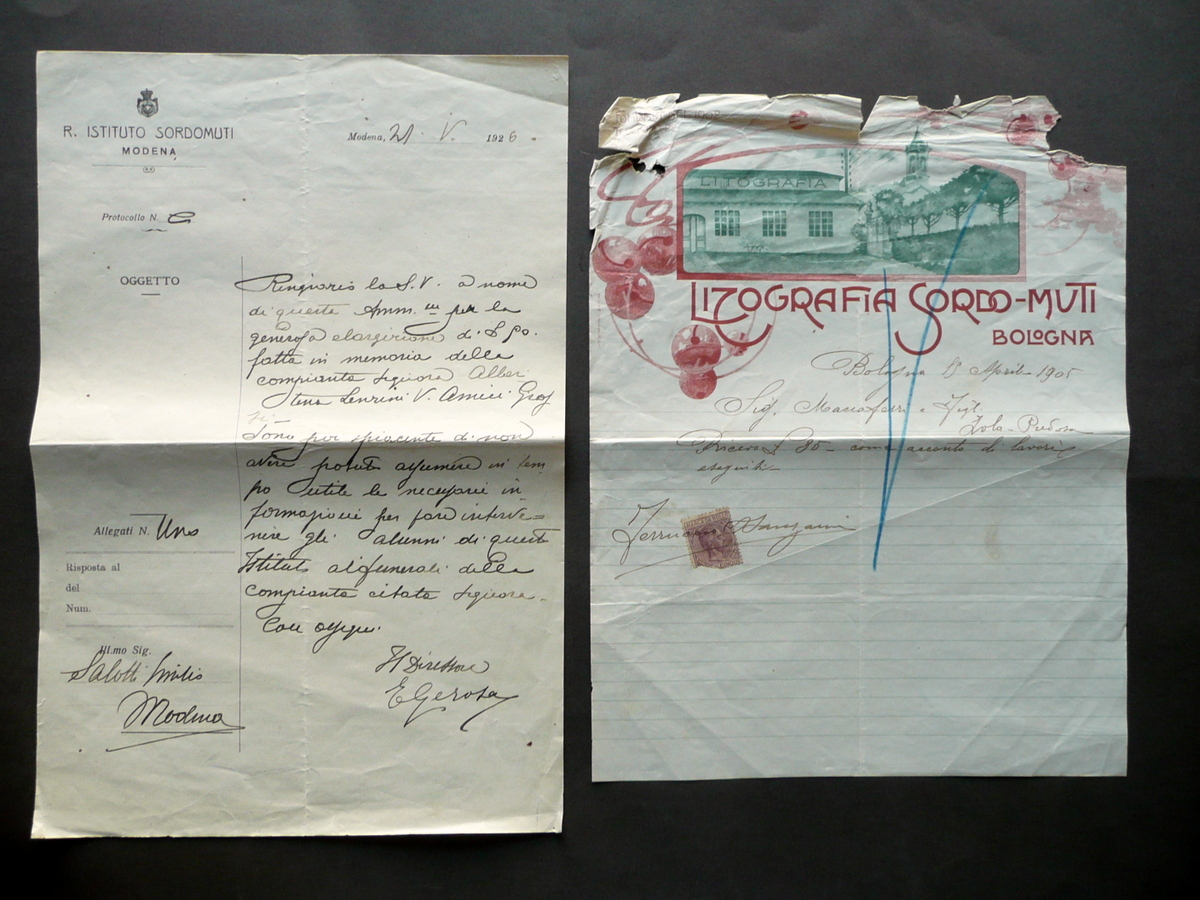 R. ISTITUTO SORDOMUTI
MODENA
Modena, 21. V. 1926
Protocollo N.
OGGETTO
Ringrazio la S. V. a nome
di questa Amm.ne per la
generosa elargizione di £ 50.
fatta in memoria della
compianta Signora Alber
tena Lenzini V. Amici Gros
si.
Sono poi spiacente di non
avere potuto assumere in tem
po utile le necessarie in
formazioni per fare interve=
nire gli alunni di questo
Istituto ai funerali della
compianta citata Signora.
Con ossequi.
Il Direttore
E Gerosa
Allegati N. Uno
Risposta al
del
Num.
Ill.mo Sig.
Salotti Emilio
Modena
LITOGRAFIA
LITOGRAFIA SORDO-MUTI
BOLOGNA
Bologna 18 Aprile 1905
Sig. Maccaferri e Figl.
Zola-Predosa
Ricevo £ 80 - come acconto di lavori
eseguiti